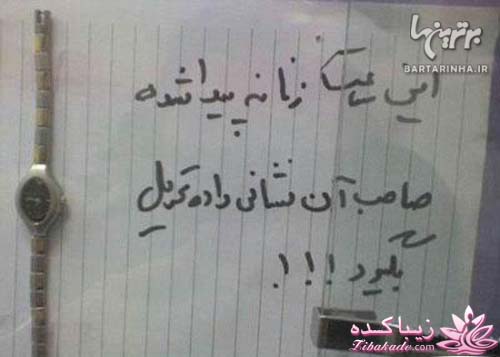 برترینها
BARTARINHA.IR
این ساعت زنانه پیدا شده
صاحب آن نشانی داده تحویل
بگیرد !!!
زیباکده
Zibakade.com